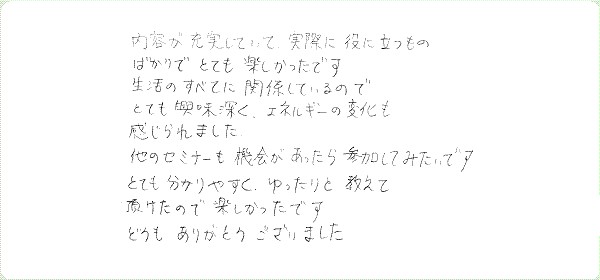 内容が充実していて、実際に役に立つもの
ばかりでとても楽しかったです
生活のすべてに関係しているので
とても興味深く、エネルギーの変化も
感じられました。
他のセミナーも機会があったら参加してみたいです
とても分かりやすく、ゆったりと教えて
頂けたので楽しかったです
どうもありがとうございました